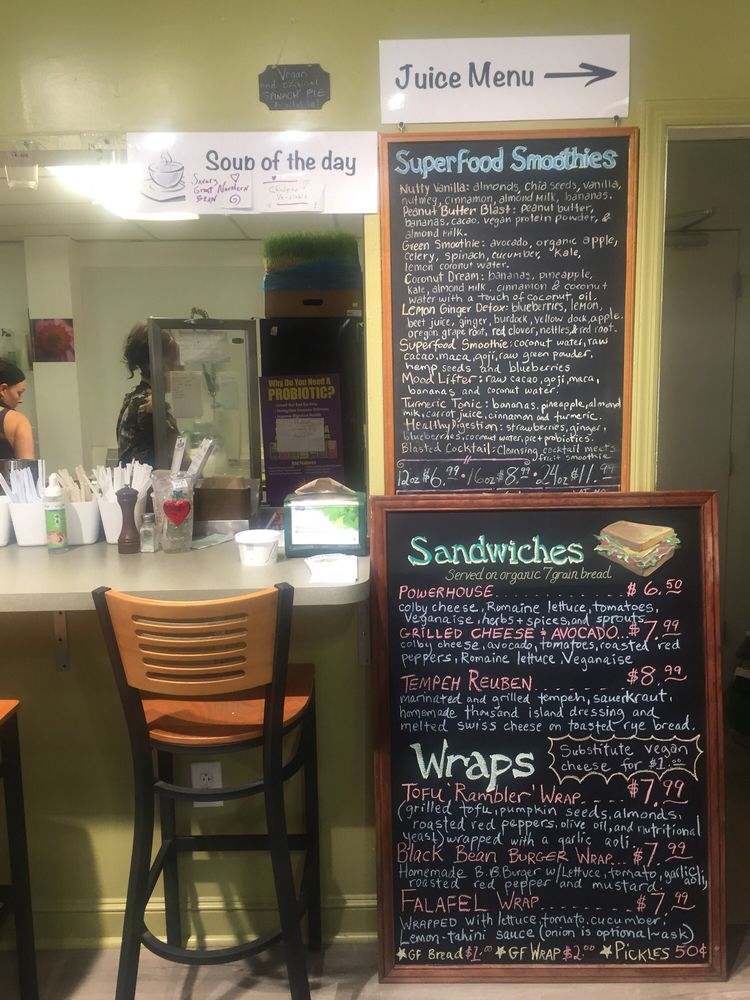 Vegan
and original
SPINACH PIE
Available!
Juice Menu
Soup of the day
Savory
Great Northern
Bean
SuperFood Smoothies
Nutty Vanilla: almonds, chia seeds, vanilla,
nutmeg, cinnamon, almond milk, bananas.
Peanut Butter Blast: peanut butter,
bananas, cacao, vegan protein powder, &
almond milk.
Green Smoothie: avocado, organic apple,
celery, spinach, cucumber, kale,
lemon coconut water.
Coconut Dream: bananas, pineapple,
kale, almond milk, cinnamon & coconut
water with a touch of coconut oil.
Lemon Ginger Detox: blueberries, lemon,
beet juice, ginger, burdock, yellow dock, apple,
oregon grape root, red clover, nettles, & red root.
Superfood Smoothie: coconut water, raw
cacao, maca, goji, raw green powder,
hemp seeds and blueberries
Mood Lifter: raw cacao, goji, maca,
bananas and coconut water.
Turmeric Tonic: bananas, pineapple, almond
milk, carrot juice, cinnamon and turmeric.
Healthy Digestion: strawberries, ginger,
blueberries, coconut water, pre + probiotics.
Blasted Cocktail: Cleansing cocktail meets
fruit smoothie
12oz $6.99 · 16oz $8.99 · 24oz $11.99
Why Do You Need A
PROBIOTIC?
Sandwiches
Served on organic 7 grain bread
POWERHOUSE $6.50
colby cheese, Romaine lettuce, tomatoes,
Veganaise, herbs + spices, and sprouts
GRILLED CHEESE & AVOCADO... $7.99
colby cheese, avocado, tomatoes, roasted red
peppers, Romaine lettuce Veganaise
TEMPEH REUBEN........ $8.99
marinated and grilled tempeh, sauerkraut,
homemade thousand island dressing and
melted swiss cheese on toasted rye bread.
Wraps
Substitute vegan
cheese for $1.00
TOFU 'RAMBLER' WRAP.... $7.99
(grilled tofu, pumpkin seeds, almonds,
roasted red peppers, olive oil, and nutritional
yeast) wrapped with a garlic aoli.
Black Bean BURGER WRAP... $7.99
Homemade B.B. Burger w/ Lettuce, tomato, garlic aoli,
roasted red pepper and mustard.
FALAFEL WRAP...... $7.99
WRAPPED with lettuce, tomato, cucumber,
Lemon-tahini sauce (onion is optional~ask)
★GF Bread $1.00 ★GF WRAP $2.00 ★PICKLES 50¢